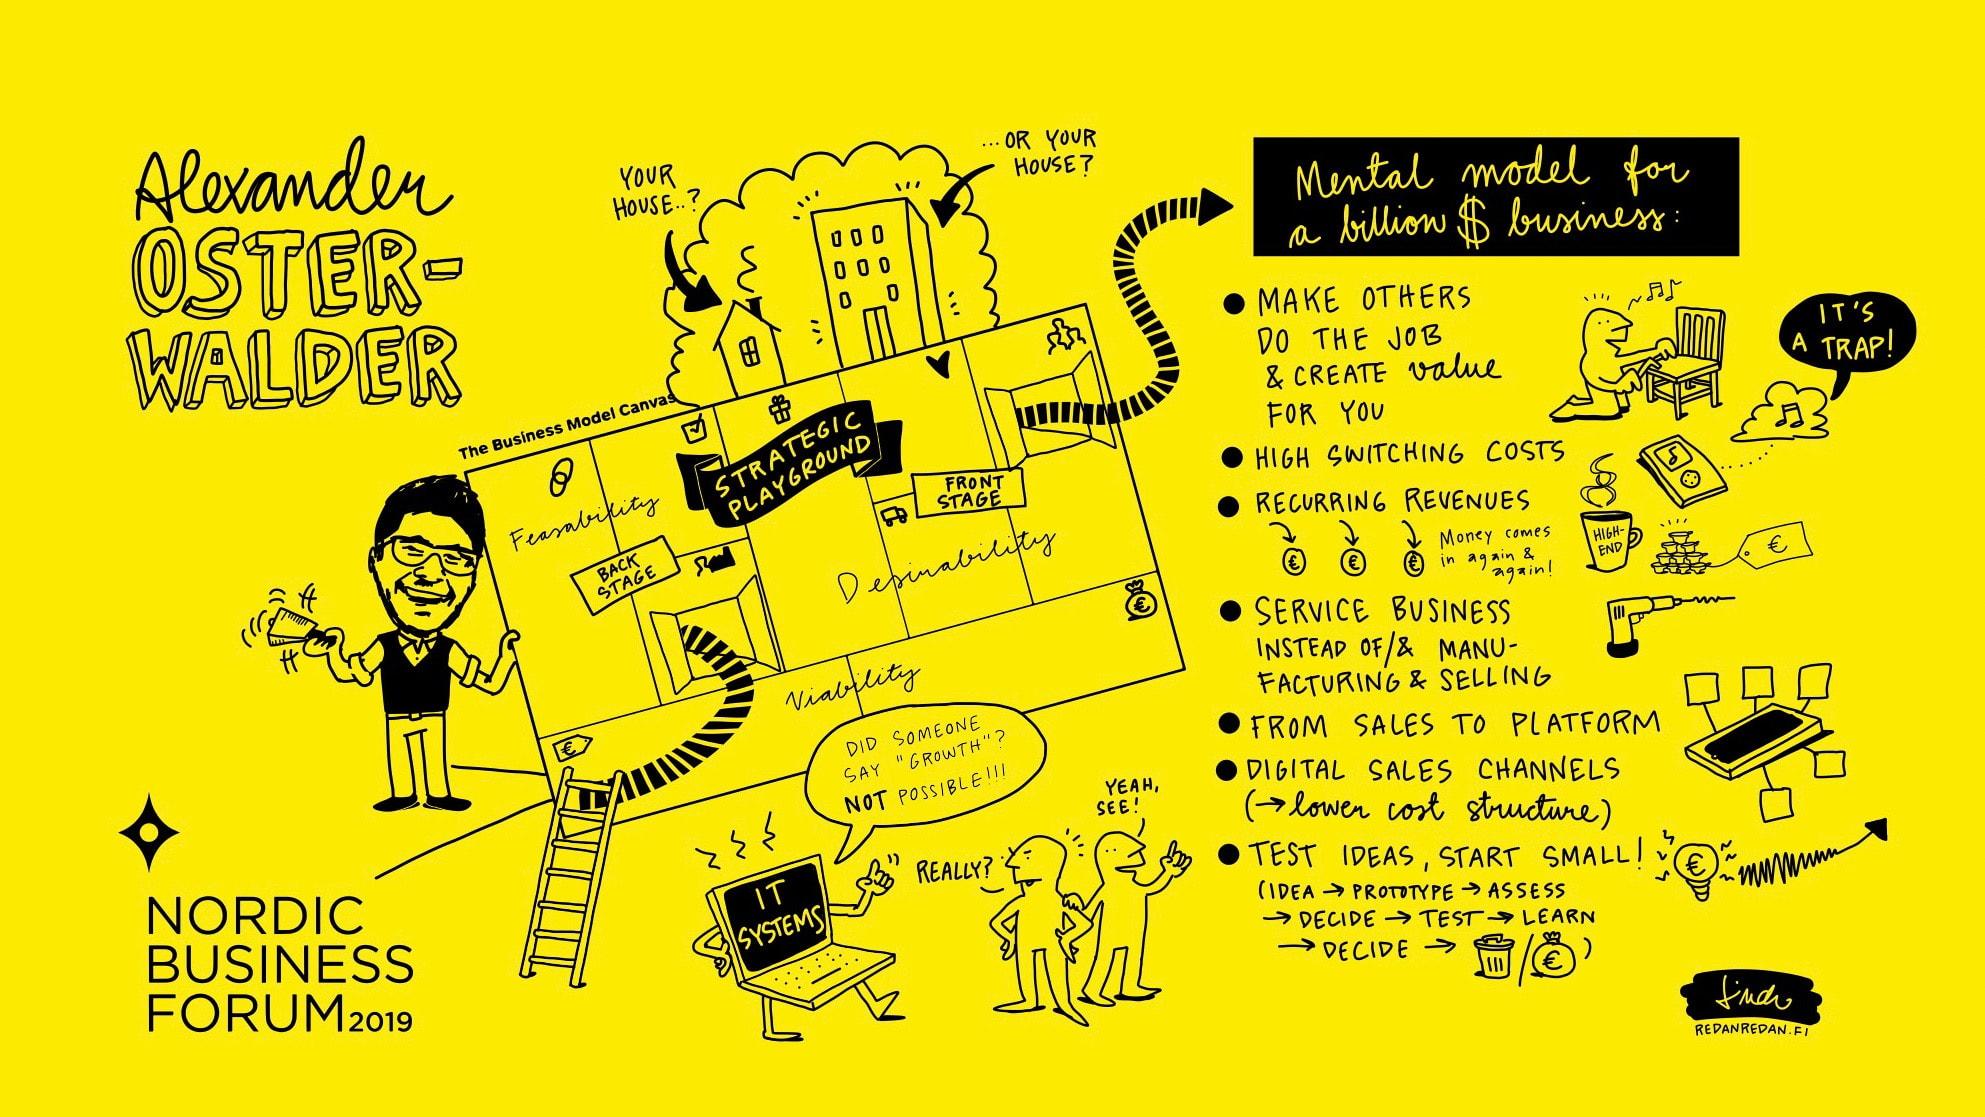 Alexander
OSTER-
WALDER
YOUR
HOUSE..?
...OR YOUR
HOUSE?
The Business Model Canvas
STRATEGIC
PLAYGROUND
Feasability
BACK
STAGE
FRONT
STAGE
Desirability
Viability
€
€
DID SOMEONE
SAY "GROWTH"?
NOT POSSIBLE!!!
IT
SYSTEMS
REALLY?
YEAH,
SEE!
NORDIC
BUSINESS
FORUM 2019
Mental model for
a billion $ business:
● MAKE OTHERS
DO THE JOB
& CREATE value
FOR YOU
IT'S
A TRAP!
● HIGH SWITCHING COSTS
● RECURRING REVENUES
€ € €
Money comes
in again &
again!
HIGH-
END
€
● SERVICE BUSINESS
INSTEAD OF/& MANU-
FACTURING & SELLING
● FROM SALES TO PLATFORM
● DIGITAL SALES CHANNELS
(→ lower cost structure)
● TEST IDEAS, START SMALL!
€
(IDEA → PROTOTYPE → ASSESS
→ DECIDE → TEST → LEARN
→ DECIDE → / € )
REDANREDAN.FI